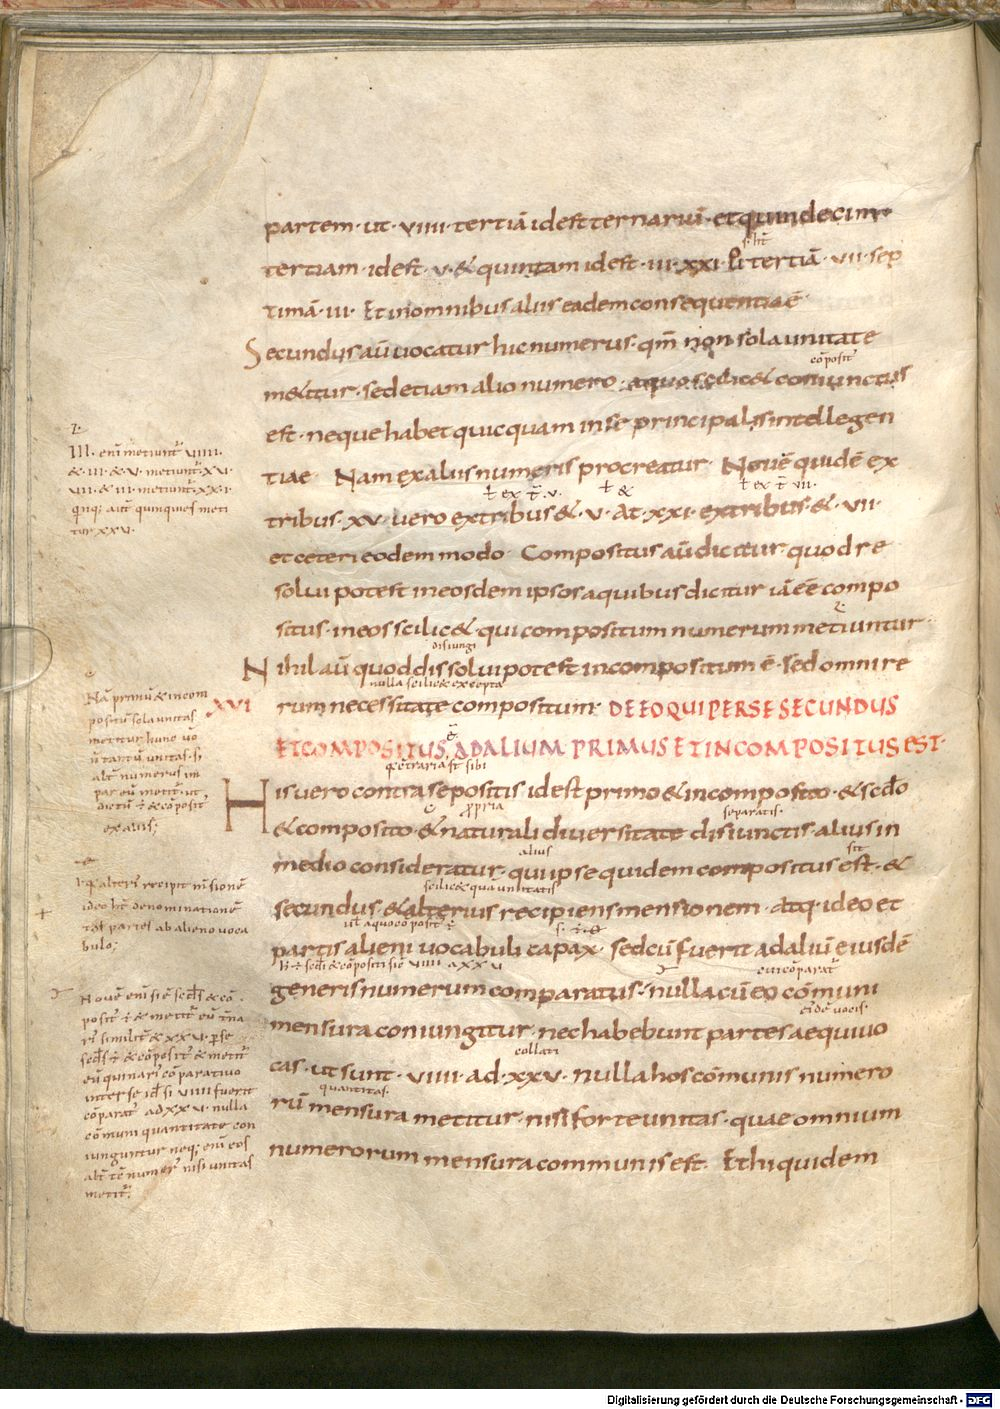 partem· ut· VIIII· tertiā id est ternariū· et quindecim
s· hꝫ
tertiam· id est· V· & quintam id est· III· XXI· tertiā· VII· sep
timā· III· Et in omnibus aliis eadem consequentia ē·
Secundus aū vocatur hic numerus· qm̄ non sola unitate
cōposit᷒
m&itur· sed etiam alio numero· a quo scilic& coniunctus
est· neque habet quicquam in se principalis intellegen
tiae· Nam ex aliis numeris procreatur· Novē quidē ex
tribus· XV· vero ex tribus &· V· At· XXI· ex tribus· &· VII·
et ceteri eodem modo· Compositus aū dicitur· quod re
solui potest in eosdem ipsos a quibus dicitur iā eē compo
situs· in eos scilic&· qui compositum numerum metiuntur·
disiungi
Nihil aū quod dissolui potest incompositum ē· sed omni re
nulla scilic& excepta
rum necessitate compositum· DE EO QUI PER SE SECUNDUS
XVI
ET COMPOSITUS, AD ALIUM PRIMUS ET INCOMPOSITUS EST·
His vero contra se positis id est primo & incomposito· & scd̄o
propria
separatis·
& composito· & naturali diversitate disiunctis· alius in
alius
sit
medio consideratur· qui ipse quidem compositus est· &
scilic& qua unitatis
secundus· & alterius recipiens mensionem· atq· ideo et
partis alieni vocabuli capax· sed cū fuerit ad aliū eiusdē
cui cōparat᷒
generis numerum comparatus· nulla cū eo cōmuni
mensura coniungitur· nec habebunt partes aequivo
collati
cas· ut sunt· VIIII· ad· XXV· nulla hos cōmunis numero
quantitas·
rū mensura metitur· nisi forte unitas· quae omnium
numerorum mensura communis est· Et hi quidem
III· enī metiunt᷒ VIIII·
& III· & V· metiunt᷒· XV·
VII· & III· metiunt᷒· XXI·
quinquies meti
tur XXV·
Nā primū & incom
positū sola unitas
metitur hunc vo
tantū unitas· s;
numerus
par eū metit᷒· ut,
& cōposit᷒
ex aliis;
alteri᷒ recipit mensionē
ideo hꝫ denominationē
partis ab alieno voca
bulo;
Novē enī sic secd̄s & cō·
posit᷒ ē & metit᷒ eū t̄na
ri᷒ similit̄ & XXV· p̄ se
secd̄s ē & cōposit᷒ & metit᷒
eū quinari᷒ cōparativo
inter se id ē si VIIII fuerit
cōparat᷒ ad XXV· nulla
cōmuni quantitate con
iunguntur neq; enī eos
numer᷒ nisi unitas
metit᷒;
Digitalisierung gefördert durch die Deutsche Forschungsgemeinschaft - DFG